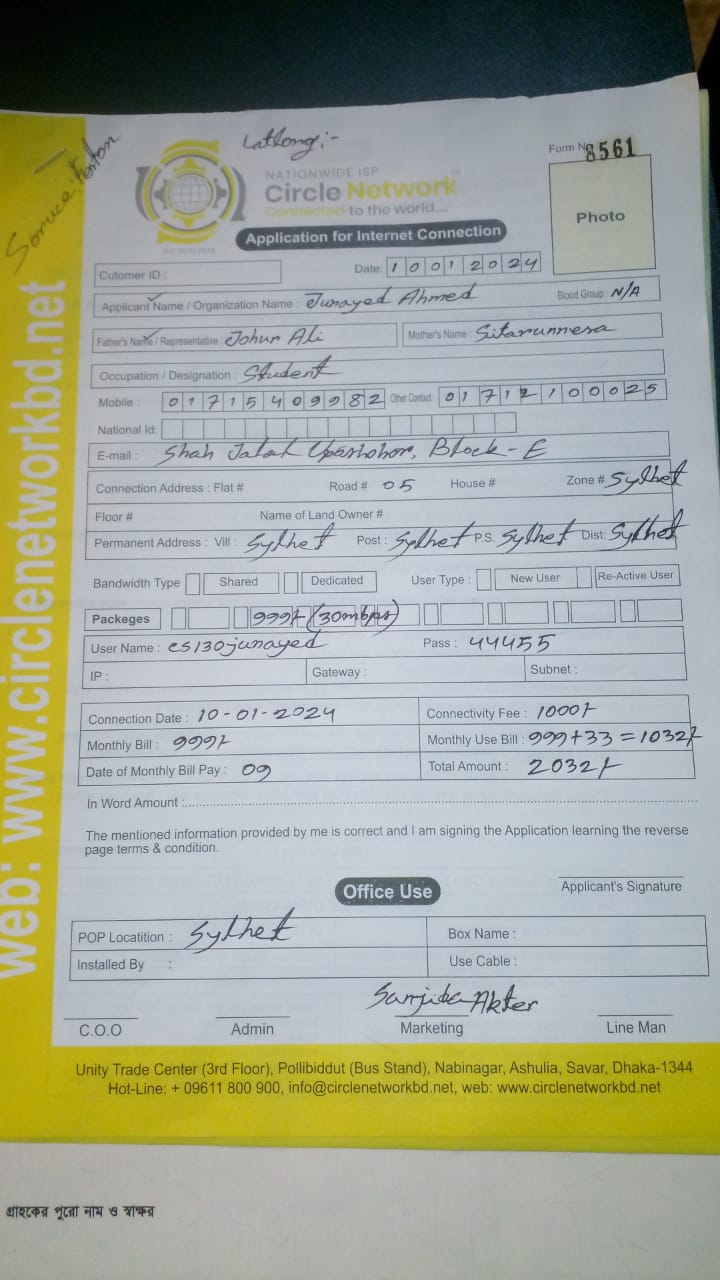 Latlong:-
Form No 8561
NATIONWIDE ISP
Circle Network
Connected to the world....
Photo
Application for Internet Connection
Cutomer ID :
Date: 10012024
Applicant Name / Organization Name : Junayed Ahmed Blood Group : N/A
Father's Name / Representative : Johur Ali Mother's Name : Sitarunnesa
Occupation / Designation : Student
Mobile : 01715409982 Other Contact 01712100025
National Id:
E-mail : Shah Jalal Uposhohor, Block - E
Connection Address : Flat # Road # 05 House # Zone # Sylhet
Floor # Name of Land Owner #
Permanent Address : Vill : Sylhet Post : Sylhet P.S. Sylhet Dist: Sylhet
Bandwidth Type Shared Dedicated User Type : New User Re-Active User
Packeges 999/- (30mbps)
User Name : cs130junayed Pass : 44455
IP : Gateway : Subnet :
Connection Date : 10-01-2024 Connectivity Fee : 1000/-
Monthly Bill : 999/- Monthly Use Bill : 999+33 = 1032/-
Date of Monthly Bill Pay : 09 Total Amount : 2032/-
In Word Amount :
The mentioned information provided by me is correct and I am signing the Application learning the reverse
page terms & condition.
Applicant's Signature
Office Use
POP Locatition : Sylhet Box Name :
Installed By : Use Cable :
Sanjida Akter
C.O.O Admin Marketing Line Man
Unity Trade Center (3rd Floor), Pollibiddut (Bus Stand), Nabinagar, Ashulia, Savar, Dhaka-1344
Hot-Line: + 09611 800 900, info@circlenetworkbd.net, web: www.circlenetworkbd.net
web: www.circlenetworkbd.net
গ্রাহকের পুরো নাম ও স্বাক্ষর